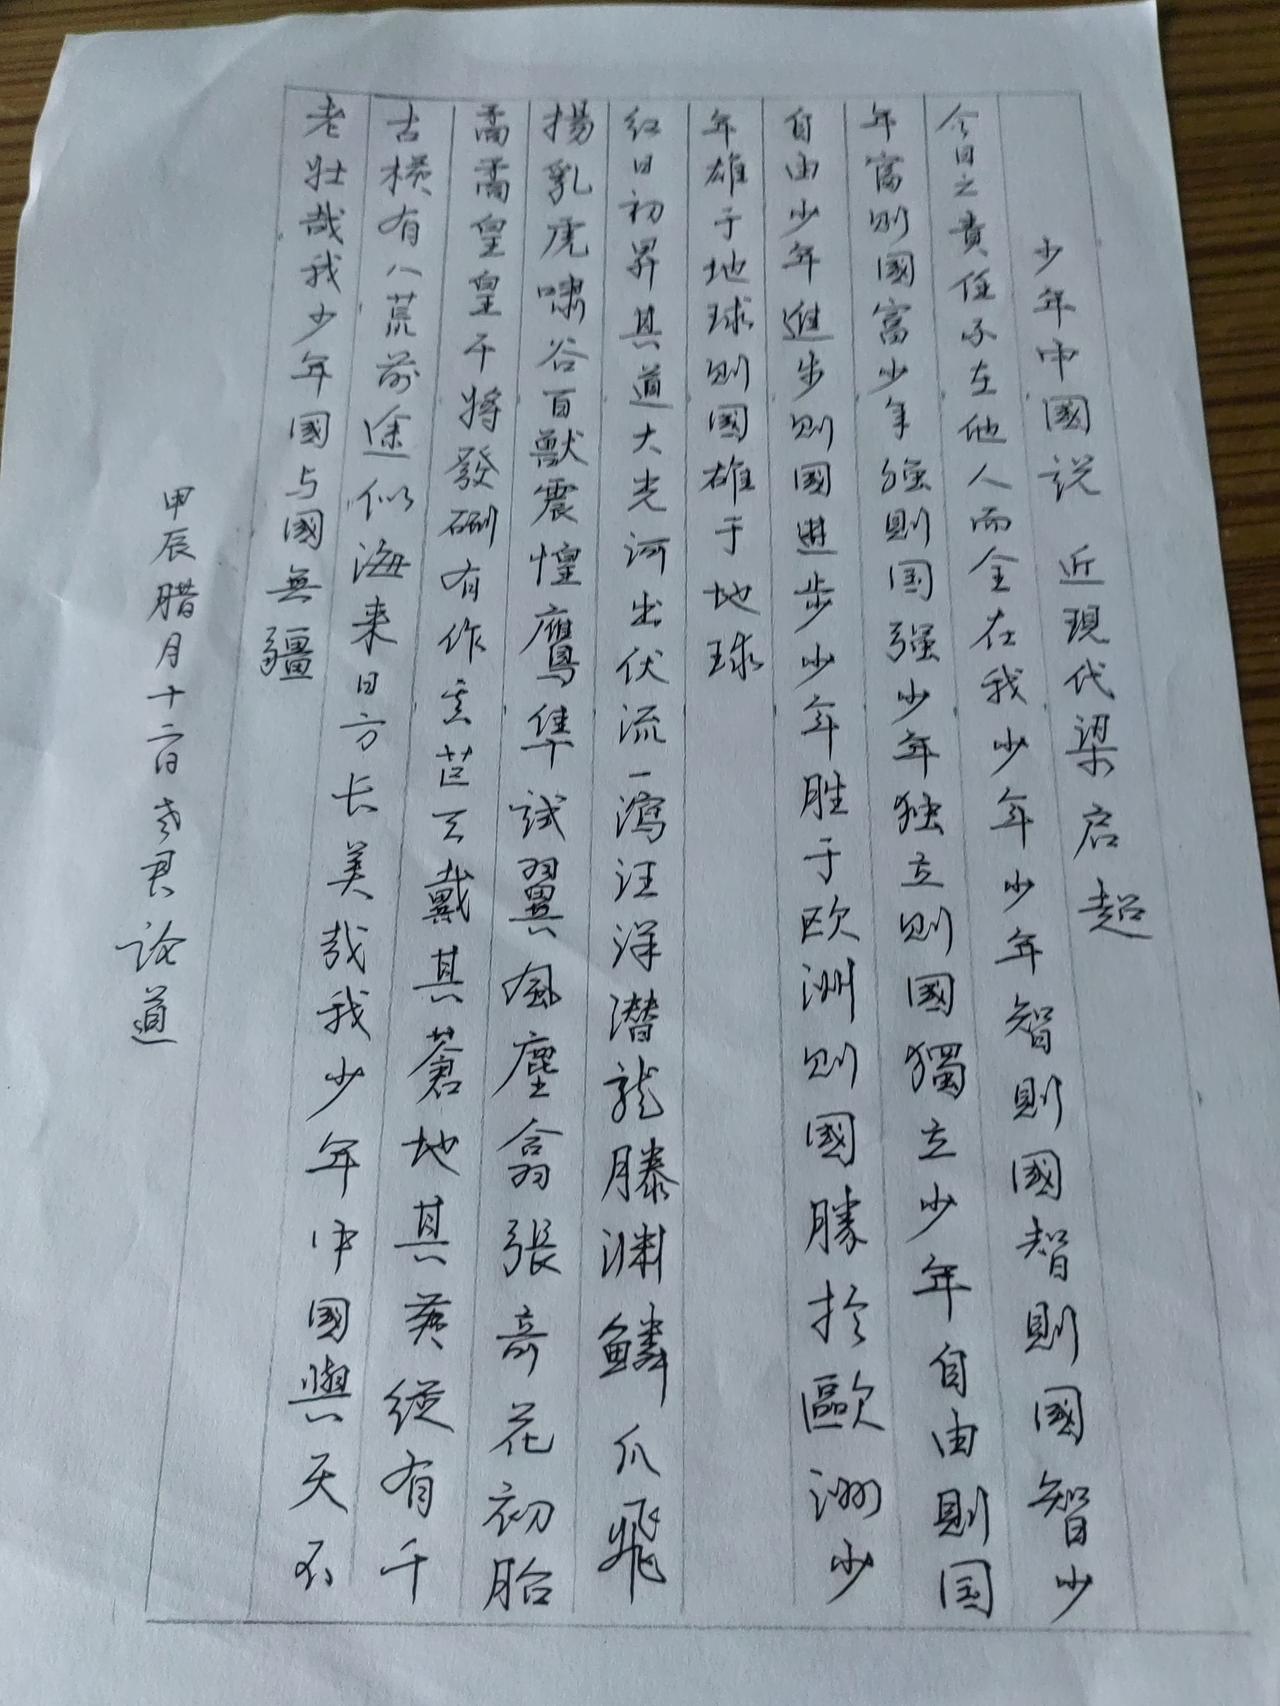 少年中國説 近現代梁启超
今日之責任不在他人而全在我少年少年智則國智則國智少
年富则國富少年强則国强少年独立则國獨立少年自由則国
自由少年進步则國進步少年胜于欧洲则國勝於歐洲少
年雄于地球则国雄于地球
红日初昇其道大光河出伏流一瀉汪洋潜龍滕渊鳞爪飛
揚乳虎啸谷百獸震惶鹰隼試翼風塵翕張奇花初胎
矞矞皇皇干將發硎有作其芒天戴其蒼地其黄縱有千
古横有八荒前途似海来日方长美哉我少年中國與天不
老壮哉我少年國与國無疆
甲辰腊月十二日 君论道